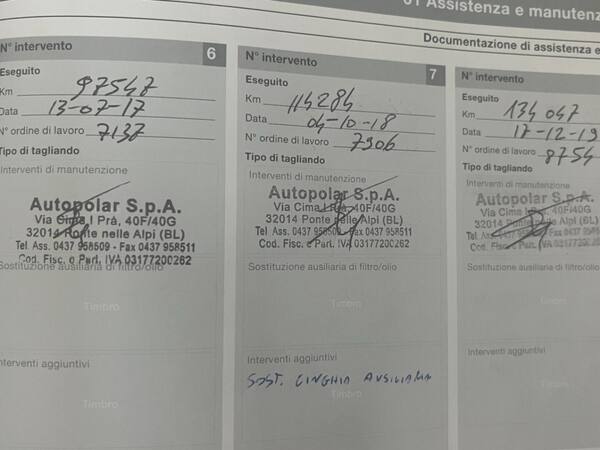 01 Assistenza e manutenz
Documentazione di assistenza e
N° intervento 6
Eseguito
Km 97547
Data 13-07-17
N° ordine di lavoro 7137
Tipo di tagliando
Interventi di manutenzione
Autopolar S.p.A.
Via Cima I Prà, 40F/40G
32014 Ponte nelle Alpi (BL)
Tel. Ass. 0437 958509 - Fax 0437 958511
Cod. Fisc. e Part. IVA 03177200262
Sostituzione ausiliaria di filtro/olio
Timbro
Interventi aggiuntivi
Timbro
N° intervento 7
Eseguito
Km 114284
Data 04-10-18
N° ordine di lavoro 7906
Tipo di tagliando
Interventi di manutenzione
Autopolar S.p.A.
Via Cima I Prà, 40F/40G
32014 Ponte nelle Alpi (BL)
Tel. Ass. 0437 958509 - Fax 0437 958511
Cod. Fisc. e Part. IVA 03177200262
Sostituzione ausiliaria di filtro/olio
Timbro
Interventi aggiuntivi
SOST. CINGHIA AUSILIARIA
Timbro
N° intervento
Eseguito
Km 134 047
Data 17-12-19
N° ordine di lavoro 8754
Tipo di tagliando
Interventi di manutenzione
Autopolar S.p.A.
Via Cima I Prà, 40F/40G
32014 Ponte nelle Alpi (BL)
Tel. Ass. 0437 958509 - Fax 0437 958511
Cod. Fisc. e Part. IVA 03177200262
Sostituzione ausiliaria di filtro/olio
Timbro
Interventi aggiuntivi
Timbro